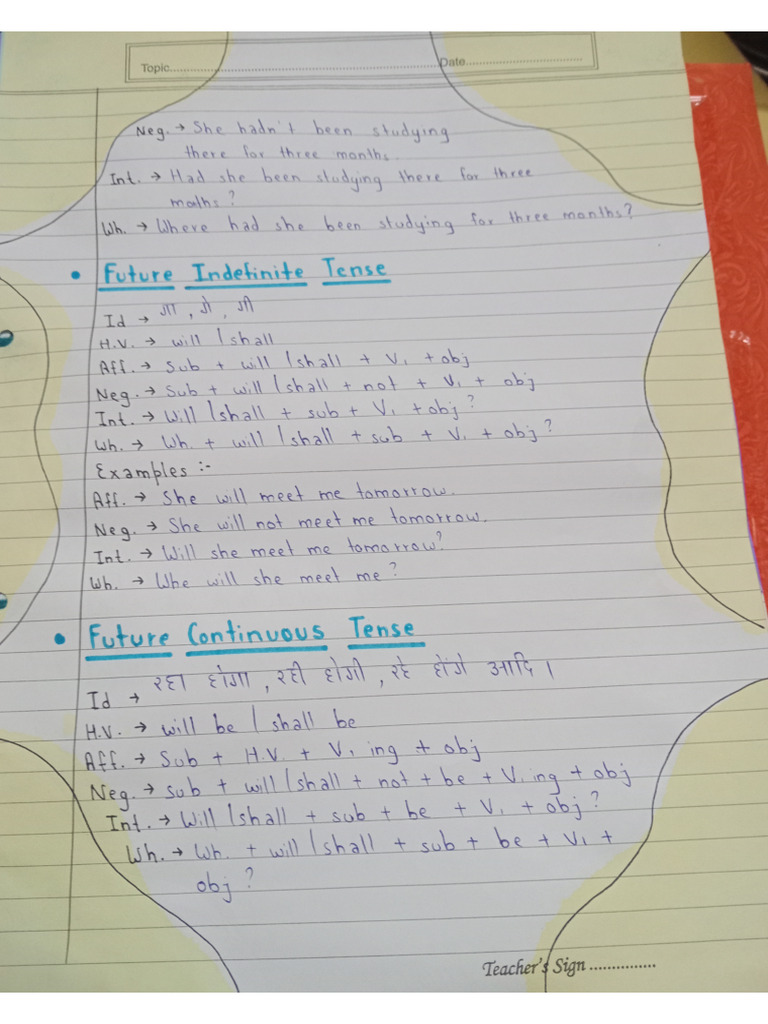 Topic.......................................................................... Date..................................
Neg. → She hadn't been studying
there for three months.
Int. → Had she been studying there for three
moths?
Wh. → Where had she been studying for three months?
• Future Indefinite Tense
Id → गा, गे, गी
H.V. → will / shall
Aff. → Sub + will / shall + V₁ + obj
Neg. → Sub + will / shall + not + V₁ + obj
Int. → Will / shall + sub + V₁ + obj?
Wh. → Wh. + will / shall + sub + V₁ + obj?
Examples :-
Aff. → She will meet me tomorrow.
Neg. → She will not meet me tomorrow.
Int. → Will she meet me tomorrow?
Wh. → Whe will she meet me?
• Future Continuous Tense
Id → रहा होगा, रही होगी, रहे होंगे आदि।
H.V. → will be / shall be
Aff. → Sub + H.V. + V₁ ing + obj
Neg. → Sub + will / shall + not + be + V₁ ing + obj
Int. → Will / shall + sub + be + V₁ + obj?
Wh. → Wh. + will / shall + sub + be + V₁ +
obj?
Teacher's Sign ...............